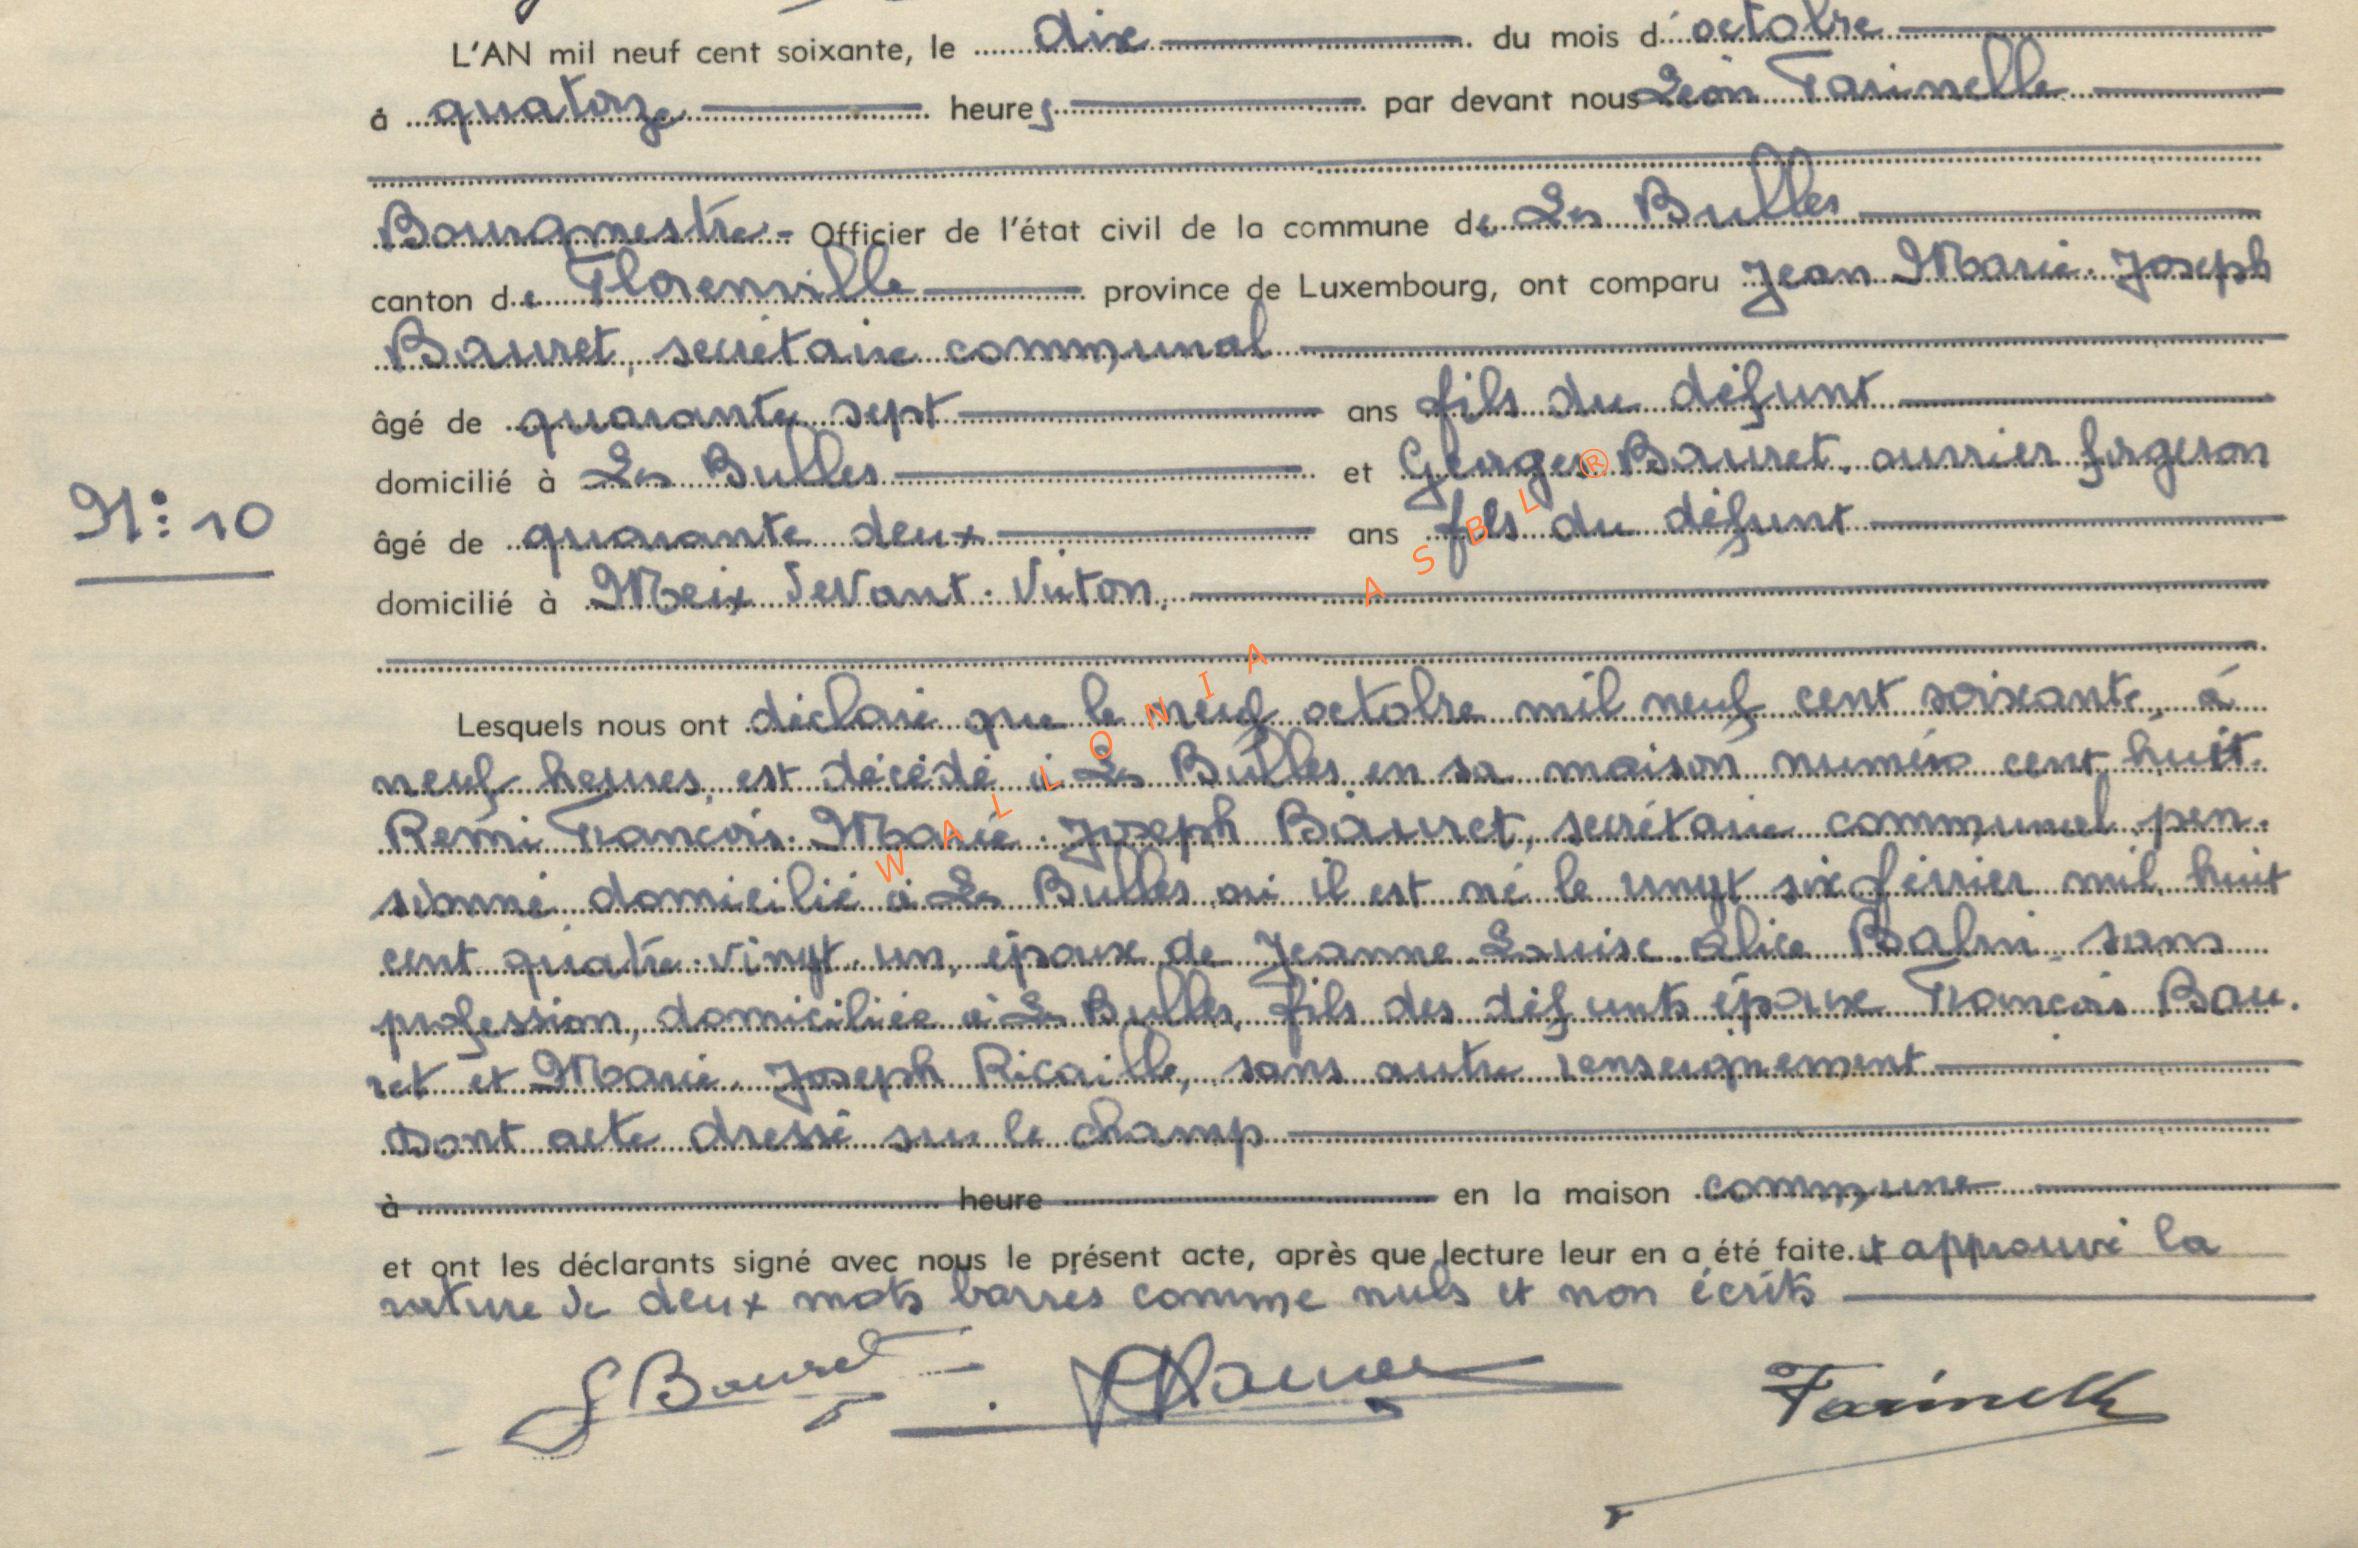 L'AN mil neuf cent soixante, le dix du mois d'octobre
à quatorze heures par devant nous Léon Farinelle
Bourgmestre - Officier de l'état civil de la commune de Les Bulles
canton de Florenville province de Luxembourg, ont comparu Jean Marie Joseph
Bauret, secrétaire communal
âgé de quarante sept ans fils du défunt
domicilié à Les Bulles et Georges Bauret, ouvrier forgeron
N: 10
âgé de quarante deux ans fils du défunt
domicilié à Meix devant Virton,
Lesquels nous ont déclaré que le neuf octobre mil neuf cent soixante, à
neuf heures, est décédé à Les Bulles en sa maison numéro cent huit
Rémi François Marie Joseph Bauret, secrétaire communal pen-
sionné domicilié à Les Bulles où il est né le vingt six février mil huit
cent quatre vingt un, époux de Jeanne Louise Alice Balon, sans
profession, domiciliée à Les Bulles, fils des défunts époux François Bau-
ret et Marie Joseph Ricaille, sans autre renseignement
Dont acte dressé sur le champ
à heure en la maison commune
et ont les déclarants signé avec nous le présent acte, après que lecture leur en a été faite. et approuvé la
rature de deux mots barrés comme nuls et non écrits
G Bauret Farinelle
WALLONIA ASBL ®